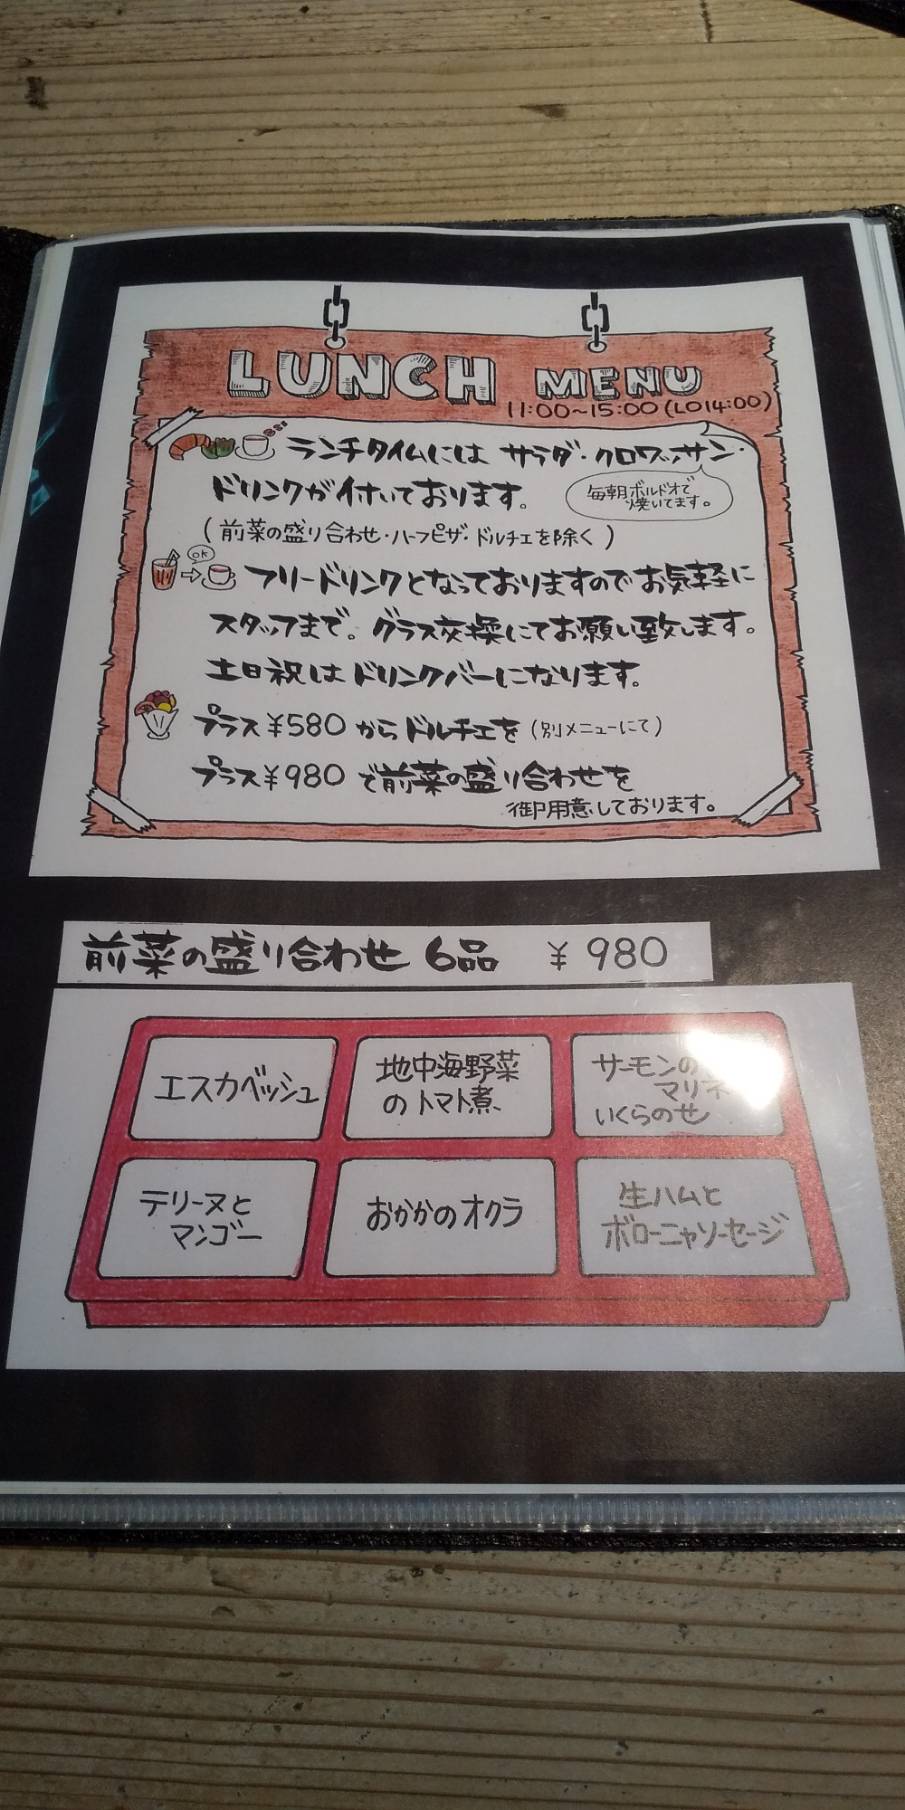 LUNCH MENU
11:00~15:00 (LO14:00)
ランチタイムには サラダ・クロワッサン・
ドリンクが付いております。
毎朝ボルドオで
焼いてます。
(前菜の盛り合わせ・ハーフピザ・ドルチェを除く)
OK
フリードリンクとなっておりますのでお気軽に
スタッフまで。グラス交換にてお願い致します。
土日祝はドリンクバーになります。
プラス¥580からドルチェを(別メニューにて)
プラス¥980で前菜の盛り合わせを
御用意しております。
前菜の盛り合わせ 6品 ¥980
エスカベッシュ
地中海野菜
のトマト煮
サーモンの
マリネ
いくらのせ
テリーヌと
マンゴー
おかかのオクラ
生ハムと
ボローニャソーセージ